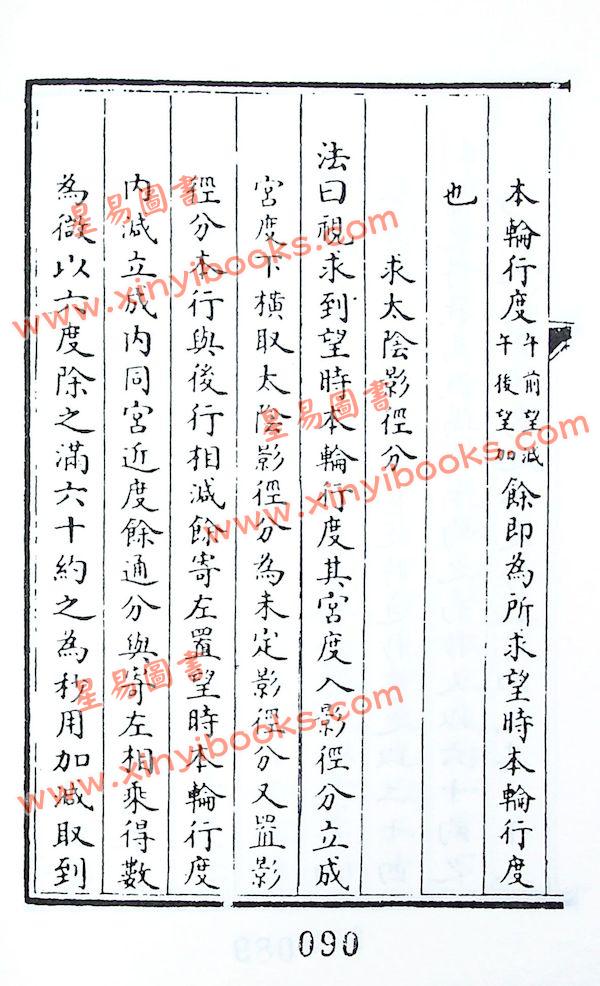 本輪行度午前望減午後望加餘即為所求望時本輪行度
也
求太陰影徑分
法曰視求到望時本輪行度其宮度入影徑分立成
宮度下橫取太陰影徑分為未定影徑分又置影
徑分本行與後行相減餘寄左置望時本輪行度
內減立成內同宮近度餘通分與寄左相乘得數
為微以六度除之滿六十約之為秒用加減取到
090
星易圖書
www.xinyibooks.com
星易圖書
www.xinyibooks.com
星易圖書
www.xinyibooks.com